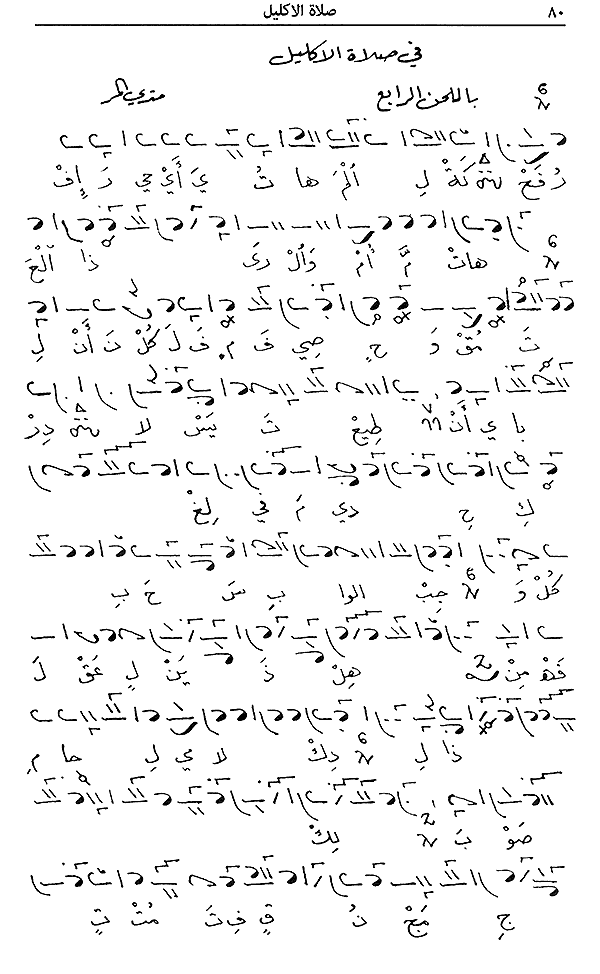 ٨٠ صلاة الاكليل
في صلاة الاكليل
باللحن الرابع متري المر
كَةْ لِ اَلْمَ ها تُ يَ أَيْ حي رَ إِفْ
هاتْ مَّ أُمْ وَالْ ذا اَلْعَ
تَ مُقْ وَ حٍ صي فَ مٍ فَ لَ كُلْ نَ أَنْ لِ
با ي أَنْ طيعْ تَ يَسْ لا دِرْ
كِ حِ دي مَ في لِغْ
كُلْ وَ جِبْ الوا بِ سَ حَ بِ
فَهْ مِنْ هِلْ ذَ يَنْ لٍ عَقْ لَ
ذا لِ دِكْ لا مي لِ حا مِ
صَوْ بَ لِكْ
جِ مَجْ تُ قٍ فِ تَ مُتْ تٍ